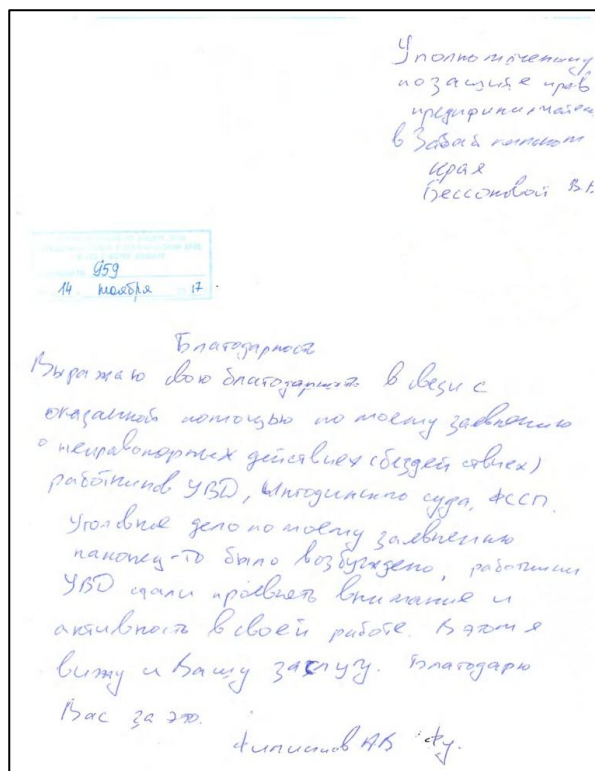 Уполномоченному
по защите прав
предпринимател
в Забайкальском
крае
Бессоновой В.
959
14 ноября 17.
Благодарность
Выражаю свою благодарность в связи с
оказанной помощью по моему заявлению
о неправомерных действиях (бездействиях)
работников УВД, Ингодинского суда, ФССП.
Уголовное дело по моему заявлению
наконец-то было возбуждено, работники
УВД стали проявлять внимание и
активность в своей работе. В этом я
вижу и Вашу заслугу. Благодарю
Вас за это.
Филиппов АВ